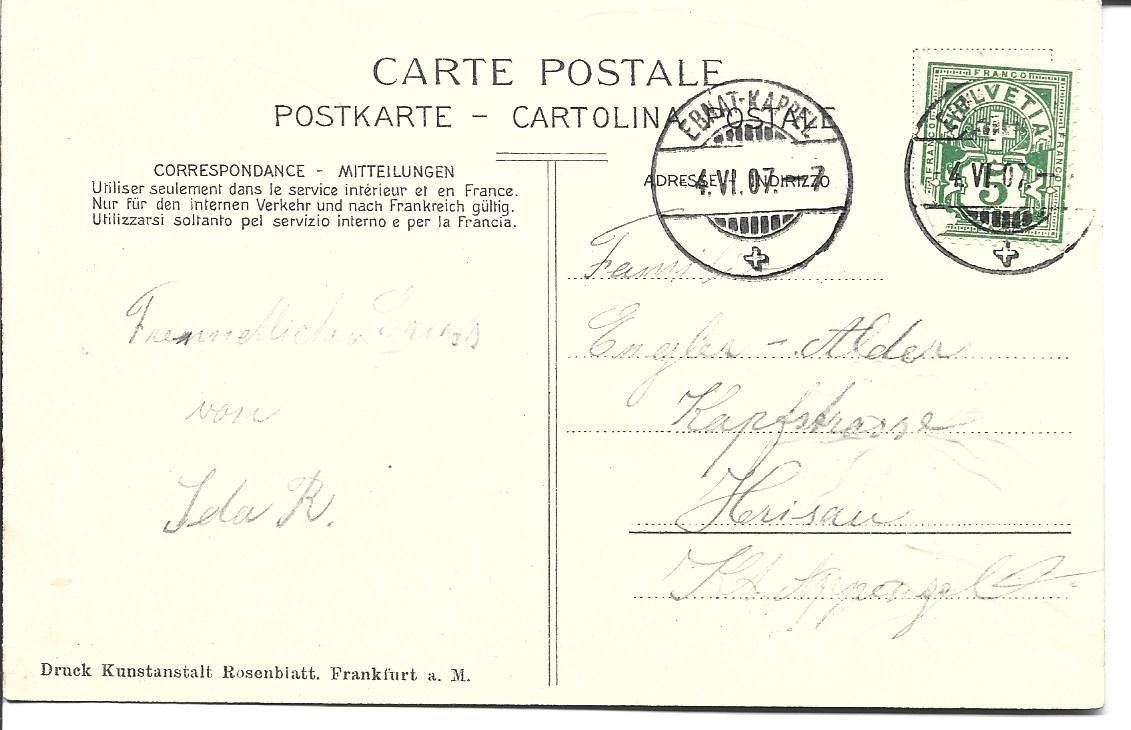 CARTE POSTALE
POSTKARTE – CARTOLINA POSTALE
CORRESPONDANCE - MITTEILUNGEN
Utiliser seulement dans le service intérieur et en France.
Nur für den internen Verkehr und nach Frankreich gültig.
Utilizzarsi soltanto pel servizio interno e per la Francia.
Freundlichen Gruss
von
Ida R.
Druck Kunstanstalt Rosenblatt. Frankfurt a. M.
EBNAT-KAPPEL
4.VI.07.–7
ADRESSE - INDIRIZZO
FRANCO
HELVETIA
FRANCO
FRANCO
5
4.VI.07.–
Famil
Engler - Alder
Kapfstrasse
Herisau
Kt Appenzell